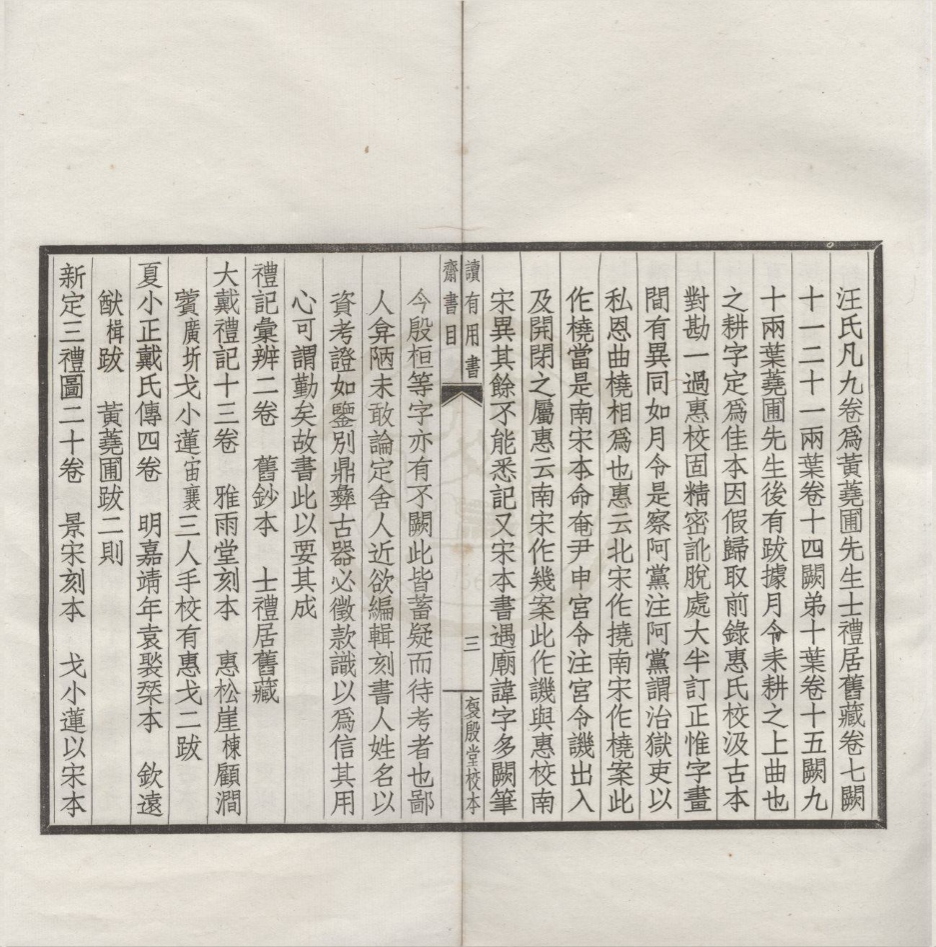 汪氏凡九卷爲黃蕘圃先生士禮居舊藏卷七闕
十一二十一兩葉卷十四闕弟十葉卷十五闕九
十兩葉蕘圃先生後有跋據月令耒耕之上曲也
之耕字定爲佳本因假歸取前錄惠氏校汲古本
對勘一過惠校固精密訛脫處大半訂正惟字畫
間有異同如月令是察阿黨注阿黨謂治獄吏以
私恩曲橈相爲也惠云北宋作撓南宋作橈案此
作橈當是南宋本命奄尹申宮令注宮令譏出入
及開閉之屬惠云南宋作幾案此作譏與惠校南
宋異其餘不能悉記又宋本書遇廟諱字多闕筆
讀有用書
齋書目
三
褒殷堂校本
今殷桓等字亦有不闕此皆蓄疑而待考者也鄙
人弇陋未敢論定舍人近欲編輯刻書人姓名以
資考證如鑒別鼎彝古器必徵款識以爲信其用
心可謂勤矣故書此以要其成
禮記彙辨二卷 舊鈔本 士禮居舊藏
大戴禮記十三卷 雅雨堂刻本 惠松崖棟顧澗
薲廣圻戈小蓮宙襄三人手校有惠戈二跋
夏小正戴氏傳四卷 明嘉靖年袁褧琹本 欽遠
猷楫跋 黃蕘圃跋二則
新定三禮圖二十卷 景宋刻本 戈小蓮以宋本